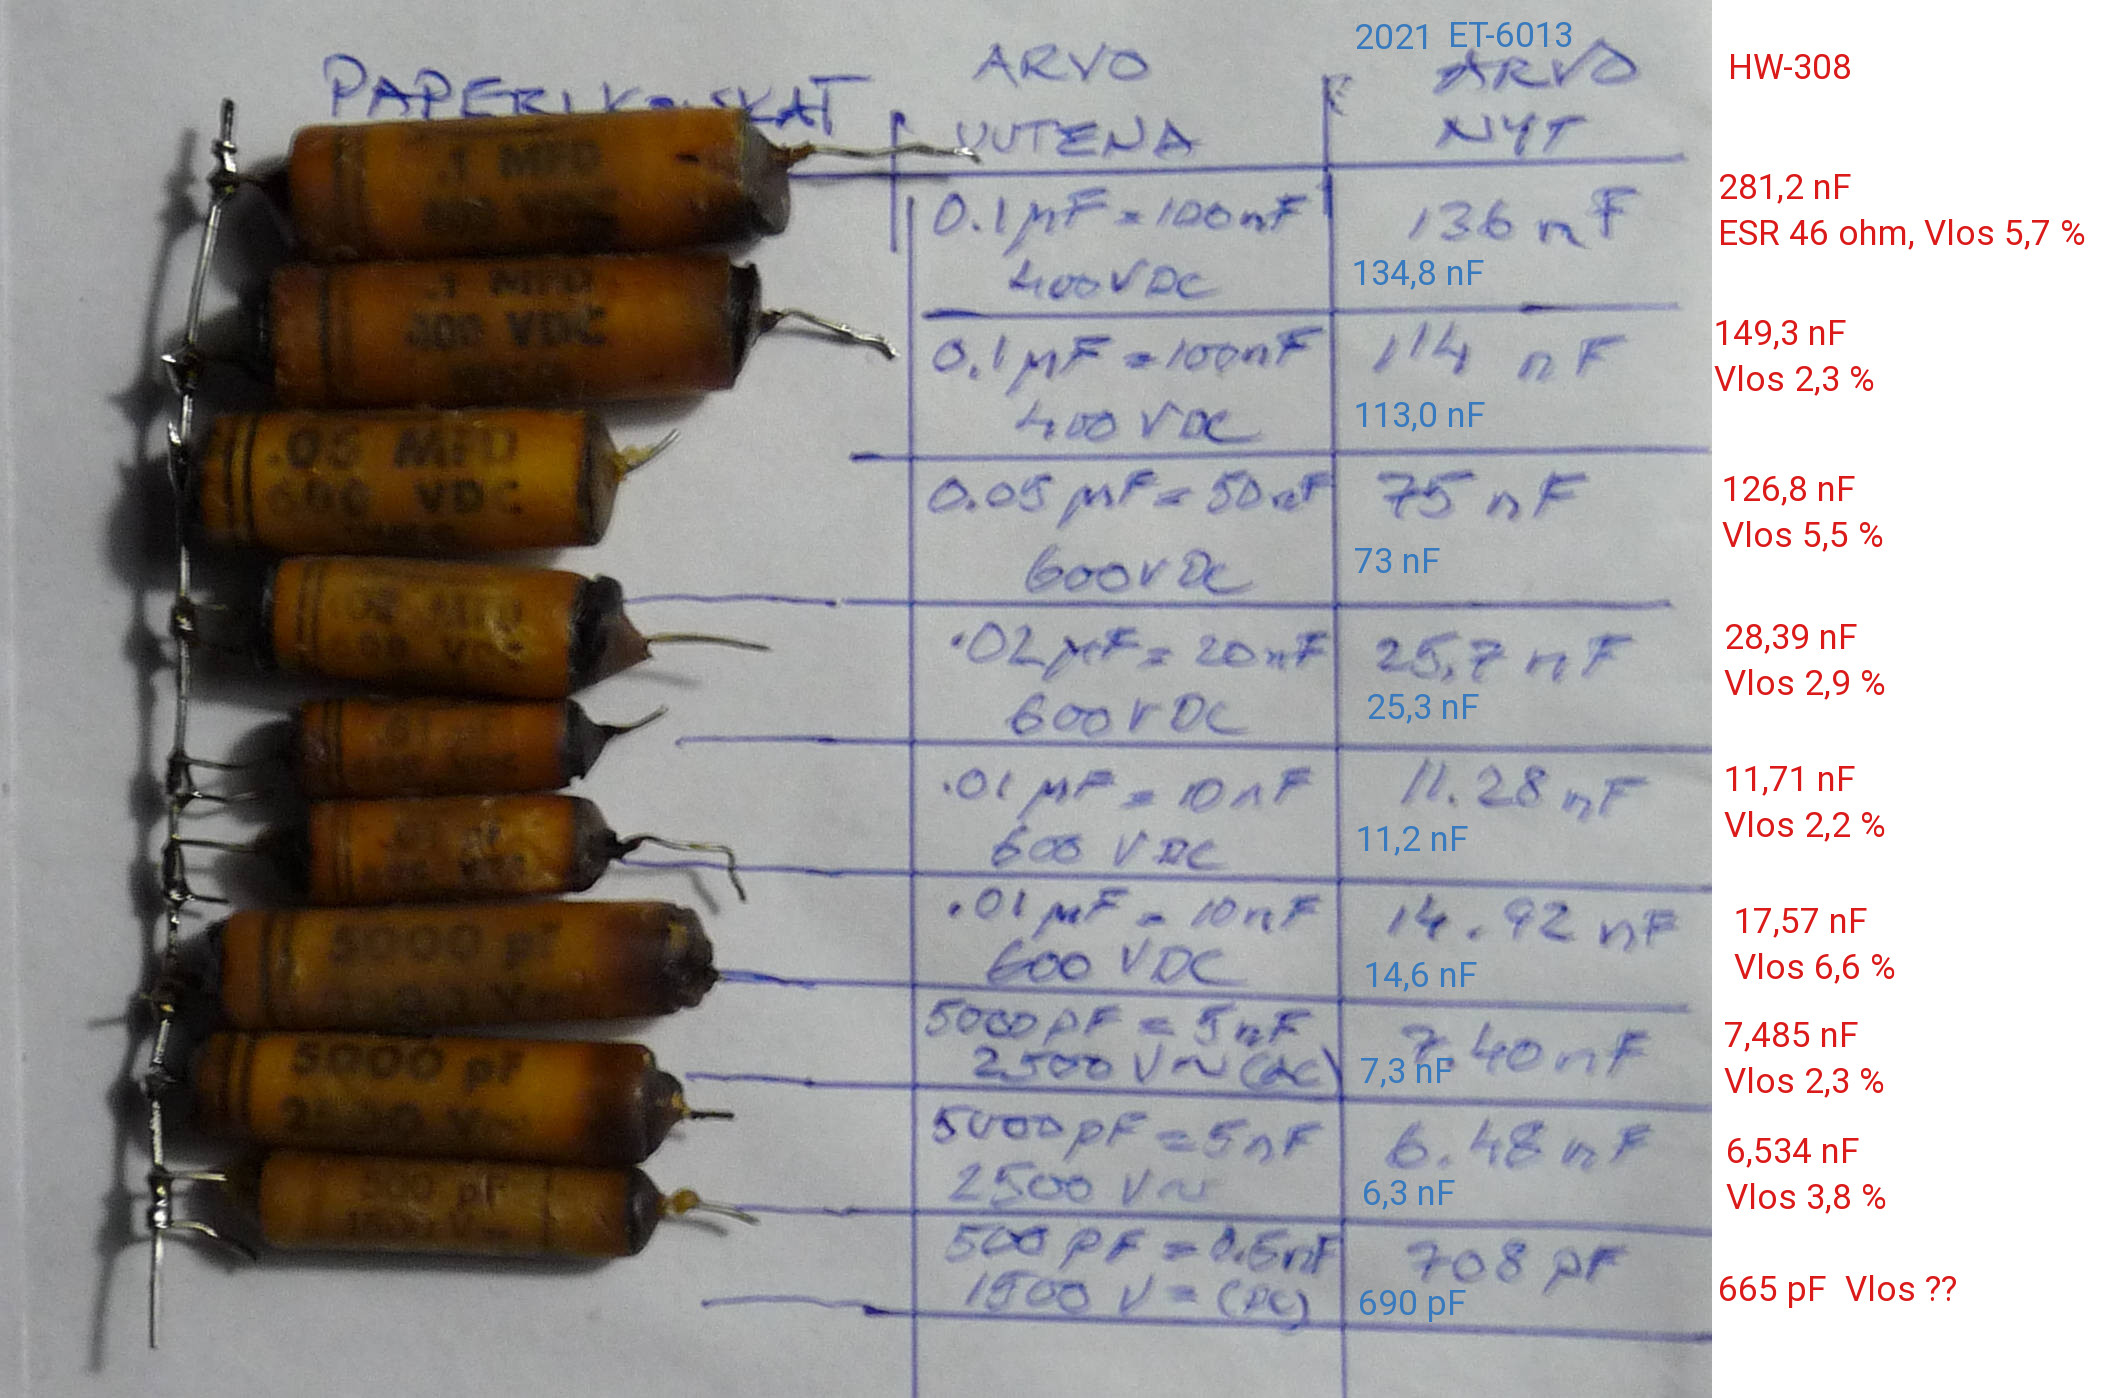 2021 ET-6013
HW-308
PAPERIKONSKAT
ARVO UUTENA
ARVO NYT
.1 MFD
0.1 µF = 100nF
136 nF
281,2 nF
400 VDC
134,8 nF
ESR 46 ohm, Vlos 5,7 %
.1 MFD
400 VDC
0.1 µF = 100nF
114 nF
149,3 nF
400 VDC
113,0 nF
Vlos 2,3 %
.05 MFD
600 VDC
0.05 µF = 50nF
75 nF
126,8 nF
600V DC
73 nF
Vlos 5,5 %
.02 MFD
VDC
.02 µF = 20nF
25,7 nF
28,39 nF
600V DC
25,3 nF
Vlos 2,9 %
.01
.01 µF = 10nF
11.28 nF
11,71 nF
600 VDC
11,2 nF
Vlos 2,2 %
.01 µF = 10nF
14.92 nF
17,57 nF
600 VDC
14,6 nF
Vlos 6,6 %
5000 pF
5000pF = 5nF
7.40nF
7,485 nF
2500 V~ (AC)
7,3 nF
Vlos 2,3 %
5000 pF
2500 V~
5000pF = 5nF
6.48 nF
6,534 nF
2500 V~
6,3 nF
Vlos 3,8 %
500 pF
1500 V=
500 pF = 0.5nF
708 pF
665 pF Vlos ??
1500 V= (DC)
690 pF